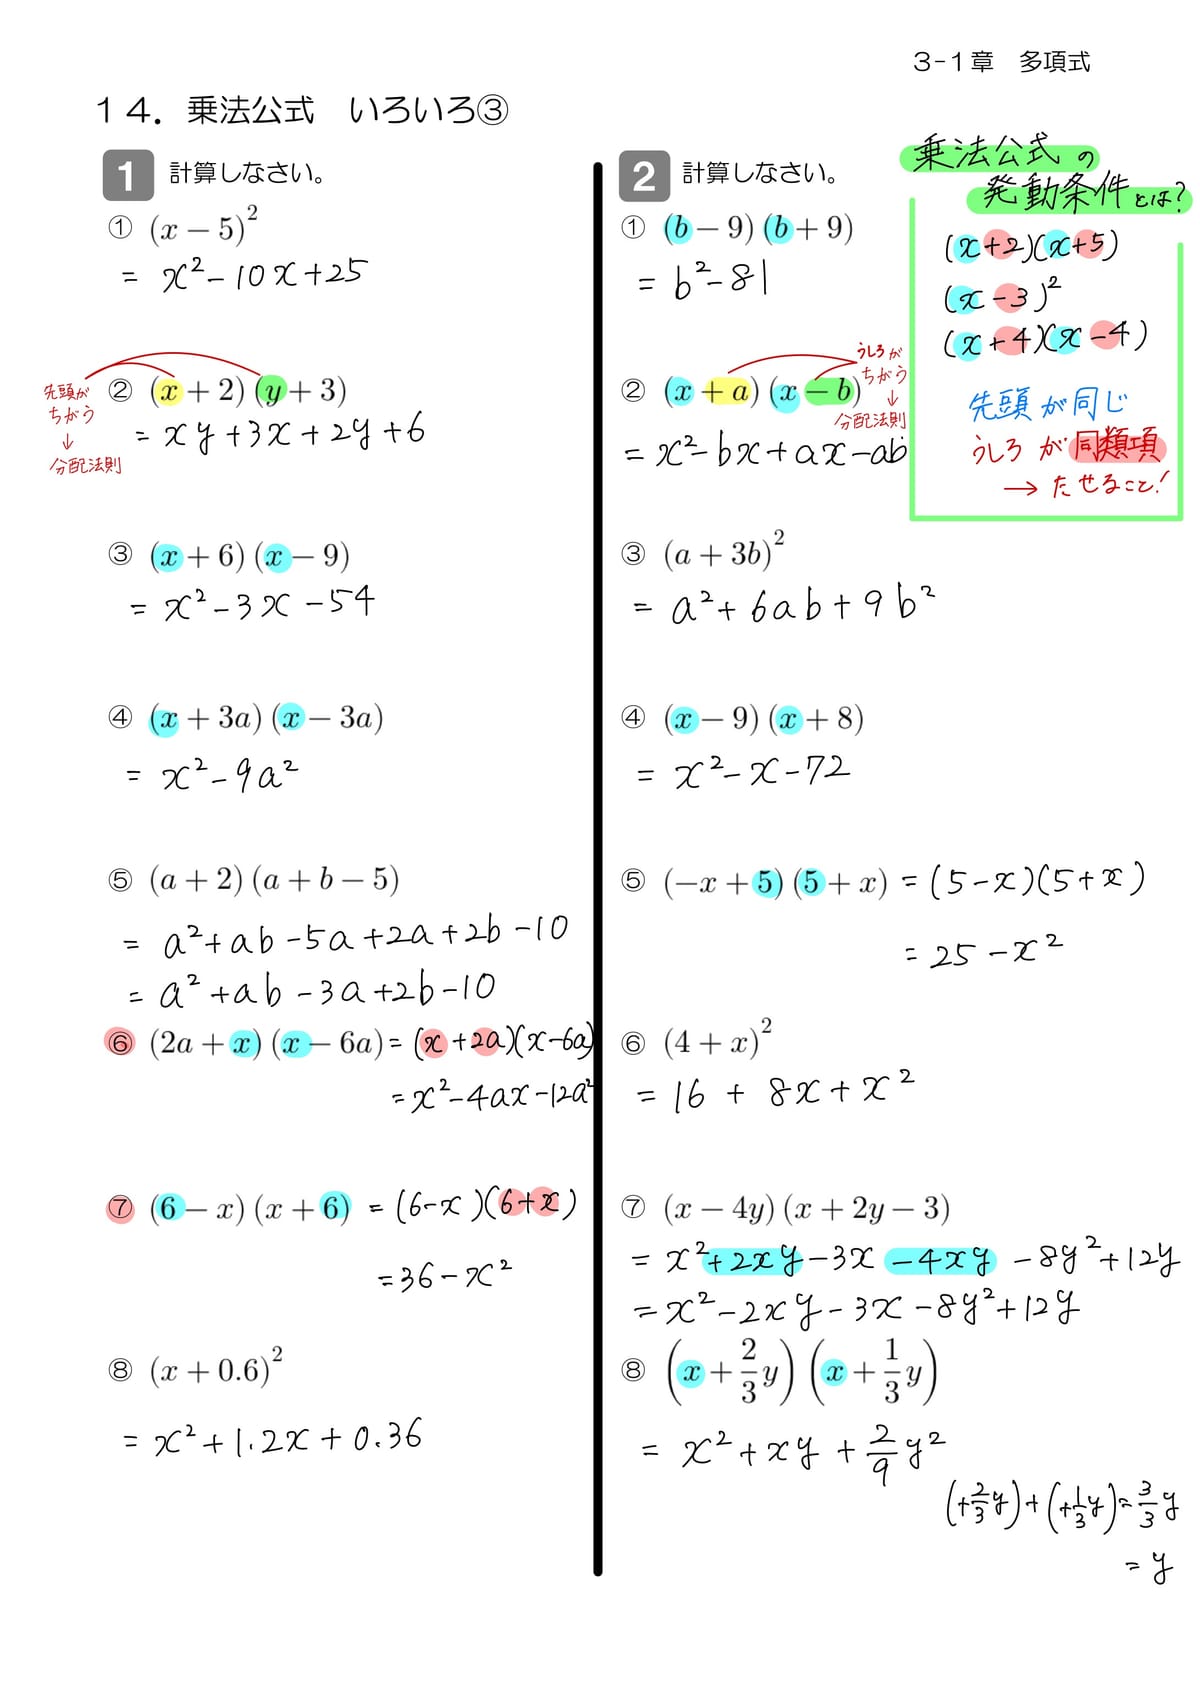 3-1章　多項式
14．乗法公式　いろいろ③
1 計算しなさい。
① (x − 5)²
= x² − 10x + 25
先頭が
ちがう
↓
分配法則
② (x + 2)(y + 3)
= xy + 3x + 2y + 6
③ (x + 6)(x − 9)
= x² − 3x − 54
④ (x + 3a)(x − 3a)
= x² − 9a²
⑤ (a + 2)(a + b − 5)
= a² + ab − 5a + 2a + 2b − 10
= a² + ab − 3a + 2b − 10
⑥ (2a + x)(x − 6a) = (x + 2a)(x − 6a)
= x² − 4ax − 12a²
⑦ (6 − x)(x + 6) = (6 − x)(6 + x)
= 36 − x²
⑧ (x + 0.6)²
= x² + 1.2x + 0.36
2 計算しなさい。
① (b − 9)(b + 9)
= b² − 81
② (x + a)(x − b)
うしろが
ちがう
↓
分配法則
= x² − bx + ax − ab
③ (a + 3b)²
= a² + 6ab + 9b²
④ (x − 9)(x + 8)
= x² − x − 72
⑤ (−x + 5)(5 + x) = (5 − x)(5 + x)
= 25 − x²
⑥ (4 + x)²
= 16 + 8x + x²
⑦ (x − 4y)(x + 2y − 3)
= x² + 2xy − 3x − 4xy − 8y² + 12y
= x² − 2xy − 3x − 8y² + 12y
⑧ (x + 2/3 y)(x + 1/3 y)
= x² + xy + 2/9 y²
(+2/3 y) + (+1/3 y) = 3/3 y
= y
乗法公式の
発動条件とは?
(x+2)(x+5)
(x−3)²
(x+4)(x−4)
先頭が同じ
うしろが同類項
→ たせること!